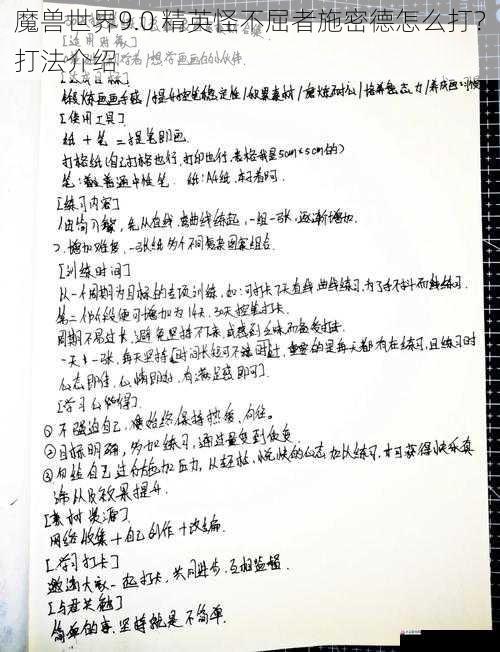 魔兽世界9.0 精英怪不屈者施密德怎么打？
打法介绍
[适用对象]
想学画画的小伙伴.
锻炼画画手感/提升控笔稳定性/积累素材/磨炼耐心/培养意志力/养成画习惯
[使用工具]
纸+笔 = 提笔即画.
打格纸(自己打格也行,打印也行,表格我是5cm×5cm的)
笔:普通中性笔. 纸:A4纸,
[练习内容]
1.由简入繁,先从直线、曲线练起,一组一张,逐渐增加.
2.增加难度,一张纸多个不同复杂图案组合.
[训练时间]
从一个周期为目标的专项训练,如:可打卡7天直线曲线练习,为了手不抖而线练习.
第二个阶段便可增加为14天、30天控笔打卡.
周期不易过长,避免坚持不下来,或感到乏味而放弃打卡.
一天一张,每天坚持[时间长短可不谈时计,重要的是每天都有在练习,且练习时
心态即佳,心情即好,有满足感即可].
[学习心得]
①不强迫自己,始终保持热爱、向往.
②目标明确,多加练习,通过量变到质变
③勿给自己过分施加压力,从轻松、愉快的心态加以练习,才可获得快乐真
谛以及效果提升.
[素材资源]
网络收集+自己创作+改编.
[学习打卡]
邀请大家一起打卡,共同进步,互相监督.
[与君共勉]
简单的事,坚持就是不简单.